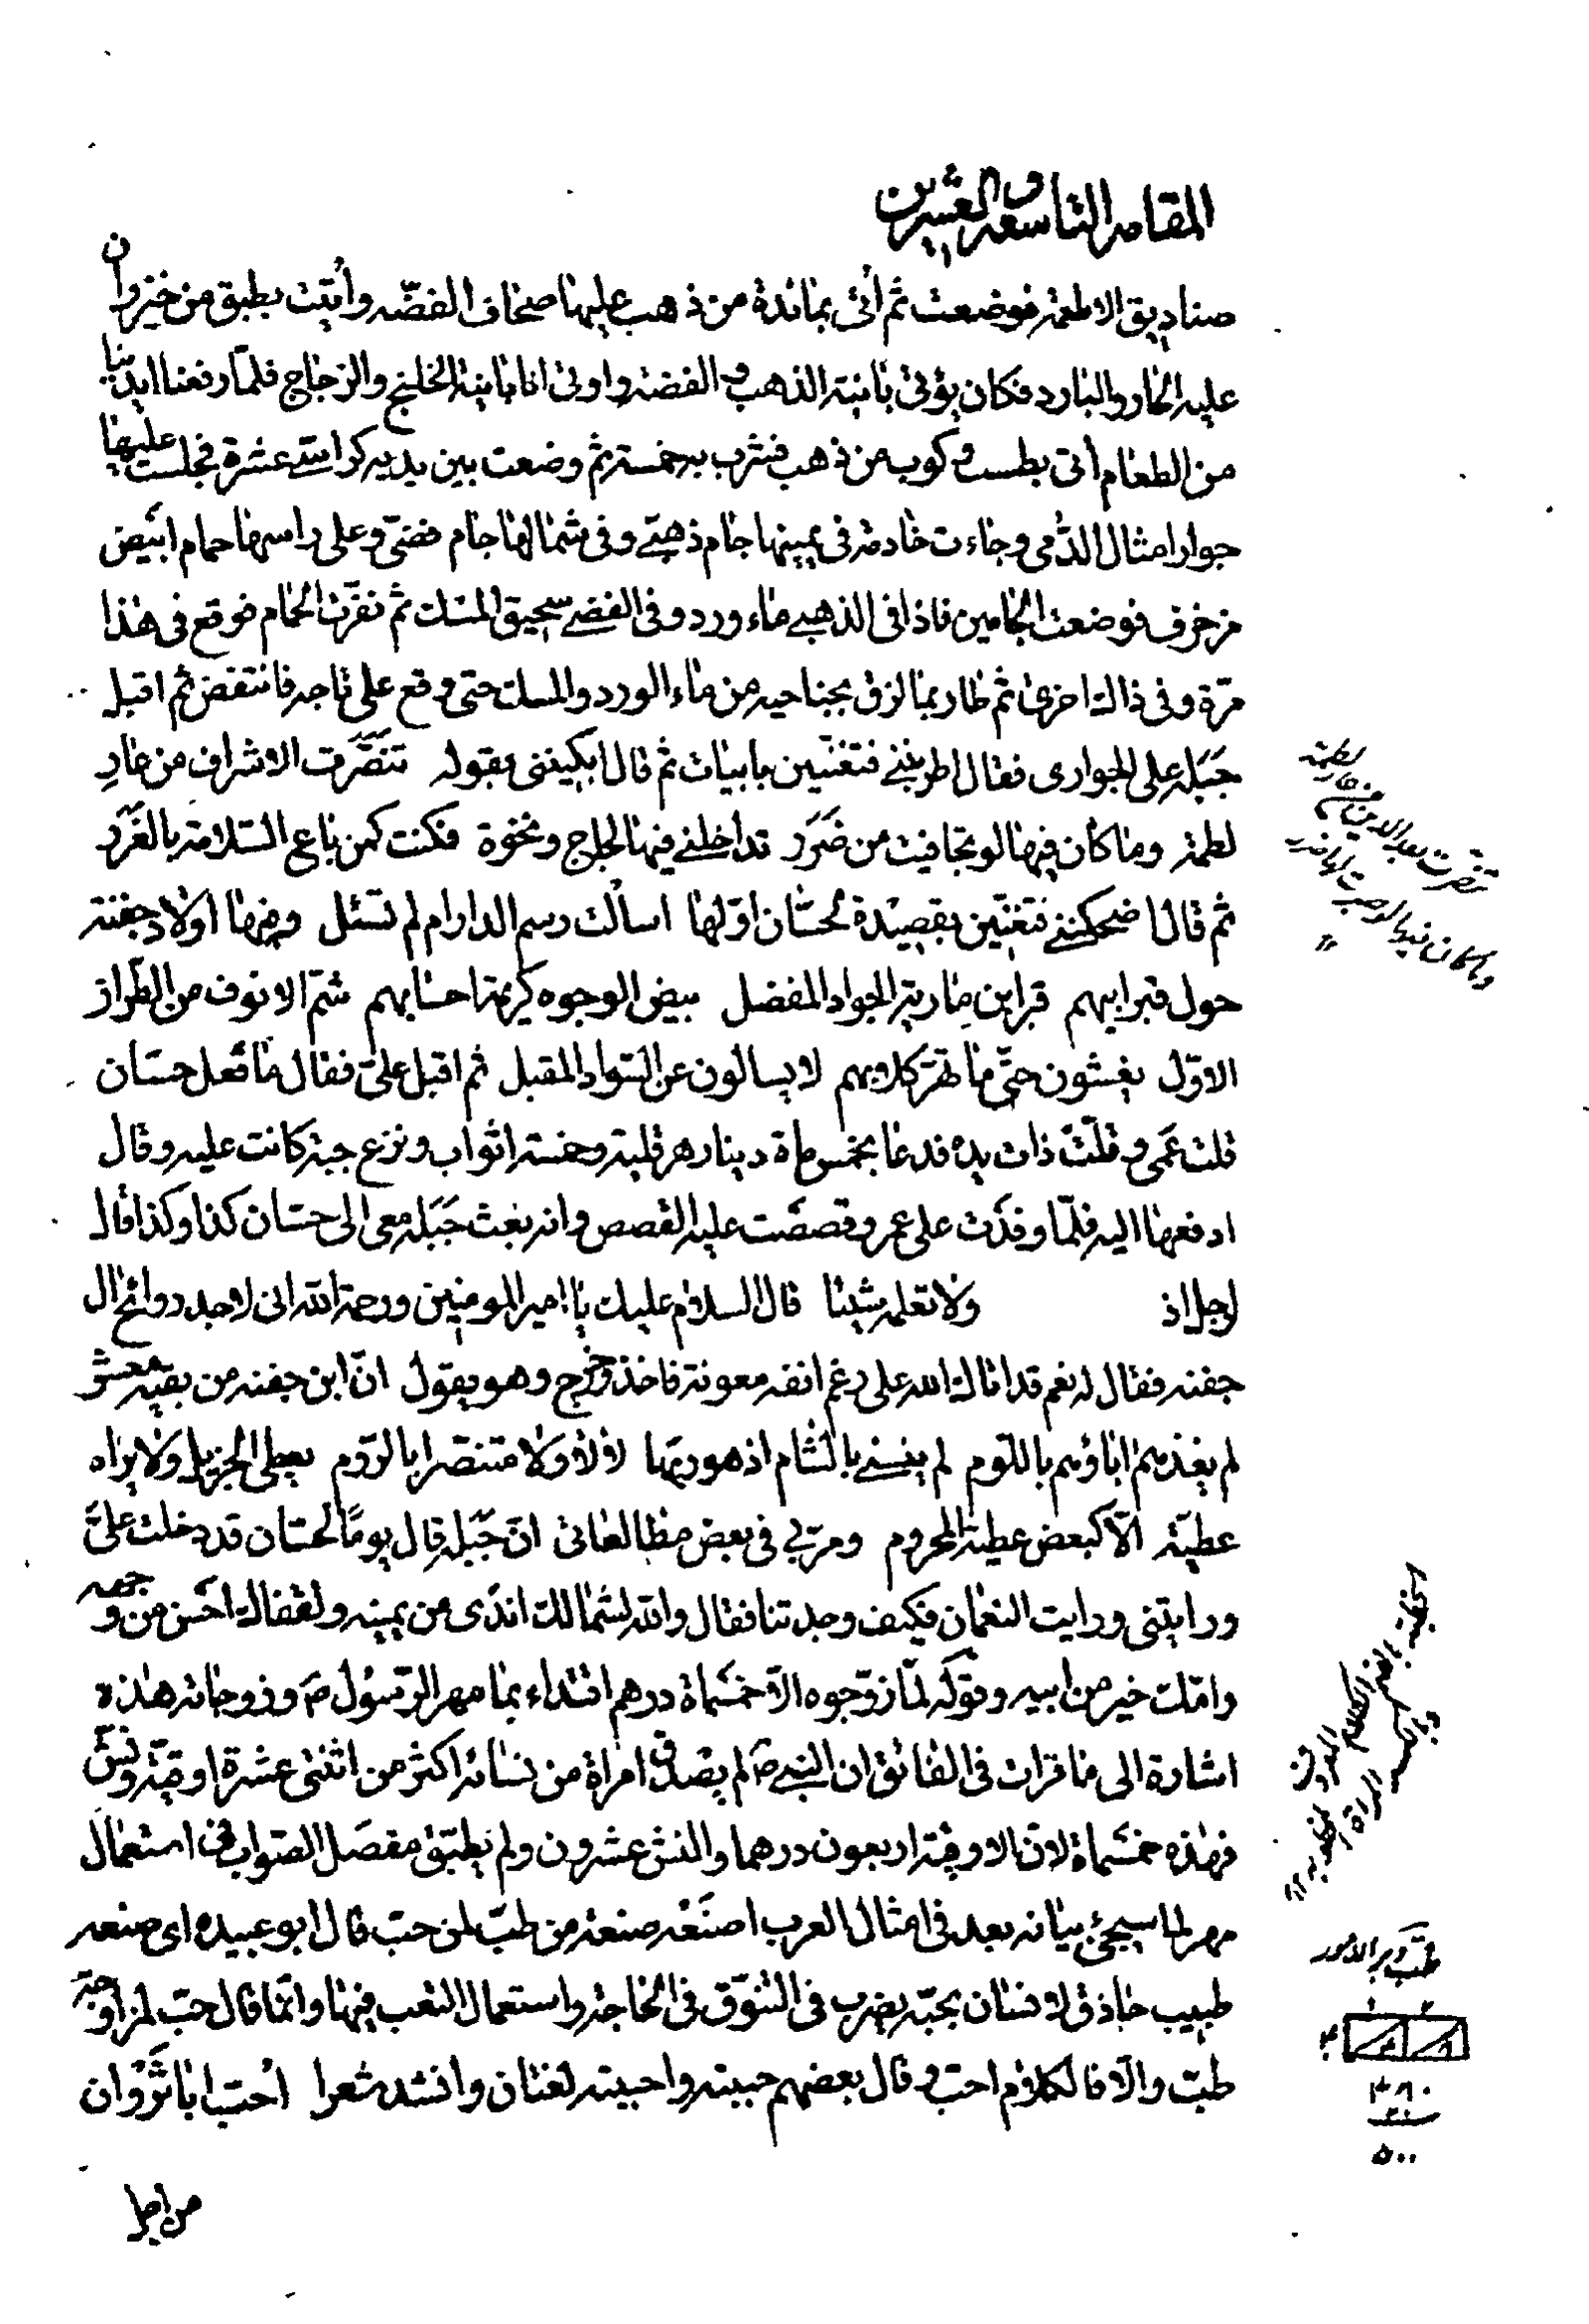 المقامه التاسعه والعشرين
صناديق الاطعمة فوضعت ثم أتى بمائدة من ذهب عليها صحاف الفضّه وأتيت بطبق من خيزران
عليه الحار والبارد فكان يؤتى بآنية الذهب والفضة واوتى انا بآنية الخلنج والزجاج فلمّا رفعنا ايدينا
من الطعام أتى بطست وكوب من ذهب فشرب به خمسة ثم وضعت بين يديه كراسى عشرة فجلست عليها
جوار امثال الدُّمى وجاءت خادمة فى يمينها جام ذهبّى وفى شمالها جام فضىّ وعلى راسها حمام ابيض
مزخرف فوضعت الجامين فاذا فى الذهبى ماء ورد وفى الفضى سحيق المسك ثم نقرت الحمام فوقع فى هذا
مرّة وفى ذاك اخرى ثم طار بما لزق بجناحيه من ماء الورد والمسك حتى وقع على تاجه فانتفض ثم اقبل
جَبَله على الجوارى فقال اطربننى فتغنّين بابيات ثم قال ابكيننى بقوله تنصّرت الاشراف من عارِ
لطمة وما كان فيها لو تجافيت من ضَرَر تداخلنى فيها لجاج ونخوة فكنت كمن باع السّلامة بالغَرَر
ثم قال اضحكننى فتغنّين بقصيدة لحسّان اوّلها اسألت رسم الدار ام لم تسئل ومنها اولاد جفنة
حول قبر ابيهم قبر ابن مارية الجواد المفضل بيض الوجوه كريمة احسابهم شمّ الانوف من الطّراز
الاوّل يغشون حتّى ما تهرّ كلابهم لا يسالون عن السّواد المقبل ثم اقبل علىّ فقال ما فعل حسّان
قلت عَمى وقلّت ذات يده فدعا بخمس ماة دينار هرقلية وخمسة اثواب ونزع جبة كانت عليه وقال
ادفعها اليه فلمّا وفدت على عمر وقصصت عليه القصص وانه بعث جَبَله معى الى حسّان كذا وكذا قال
لرجل اذ ولا تعلمه شيئا قال السلام عليك يا امير المومنين ورحمة الله انى لاجد روائح ال
جفنه فقال له نعم قد اتاك الله على رغم انفه معونة فاخذ وخرج وهو يقول انّ ابن جفنه من بقيه معشر
لم يغذهم اباؤهم باللّوم لم ينسنى بالشّام اذ هو ربّها لا ولا متنصّرا بالرّوم يعطى الجزيل ولا يراه
عطيّة الّا كبعض عطية المحروم ومرّ بى فى بعض مطالعاتى انّ جَبَله قال يومًا لحسّان قد دخلت علىَّ
ورايتنى ورايت النعمان فكيف وجدتنا فقال والله لشمالك اندى من يمينه ولقفاك احسن من وجهه
وامّك خير من ابيه وقوله لما زوّجوه الّا خمسماة درهم اقتداء بما مهر الرّسول ص وزوجاته هذه
اشارة الى ما قرات فى الفائق ان النبى ص لم يصدق امراة من نسائه اكثر من اثنتى عشرة اوقيّة ونش
فهذه خمسماة لانّ الاوقية اربعون درهما والنش عشرون ولم يطبّق مفصَل الصّواب فى استعمال
مهر لما سيجئ بيانه بعد فى امثال العرب اصنَعْه صنعة من طبّ لمن حبّ قال ابو عبيده اى صنعه
طبيب حاذق لانسان يحبّه يضرب فى التنوّق فى الحاجة واستعمال التعب فيها وانّما قال حبّ لمزاوجة
طبّ والّا فالكلام احبّ وقال بعضهم حببته واحببته لغتان وانشد شعرا أحبّ ابا ثَرْوان
من اجل
تنصرت بعد الدين من عار لطمة
وما كان فيها لو صبرت لها ضرر
٥٠٠